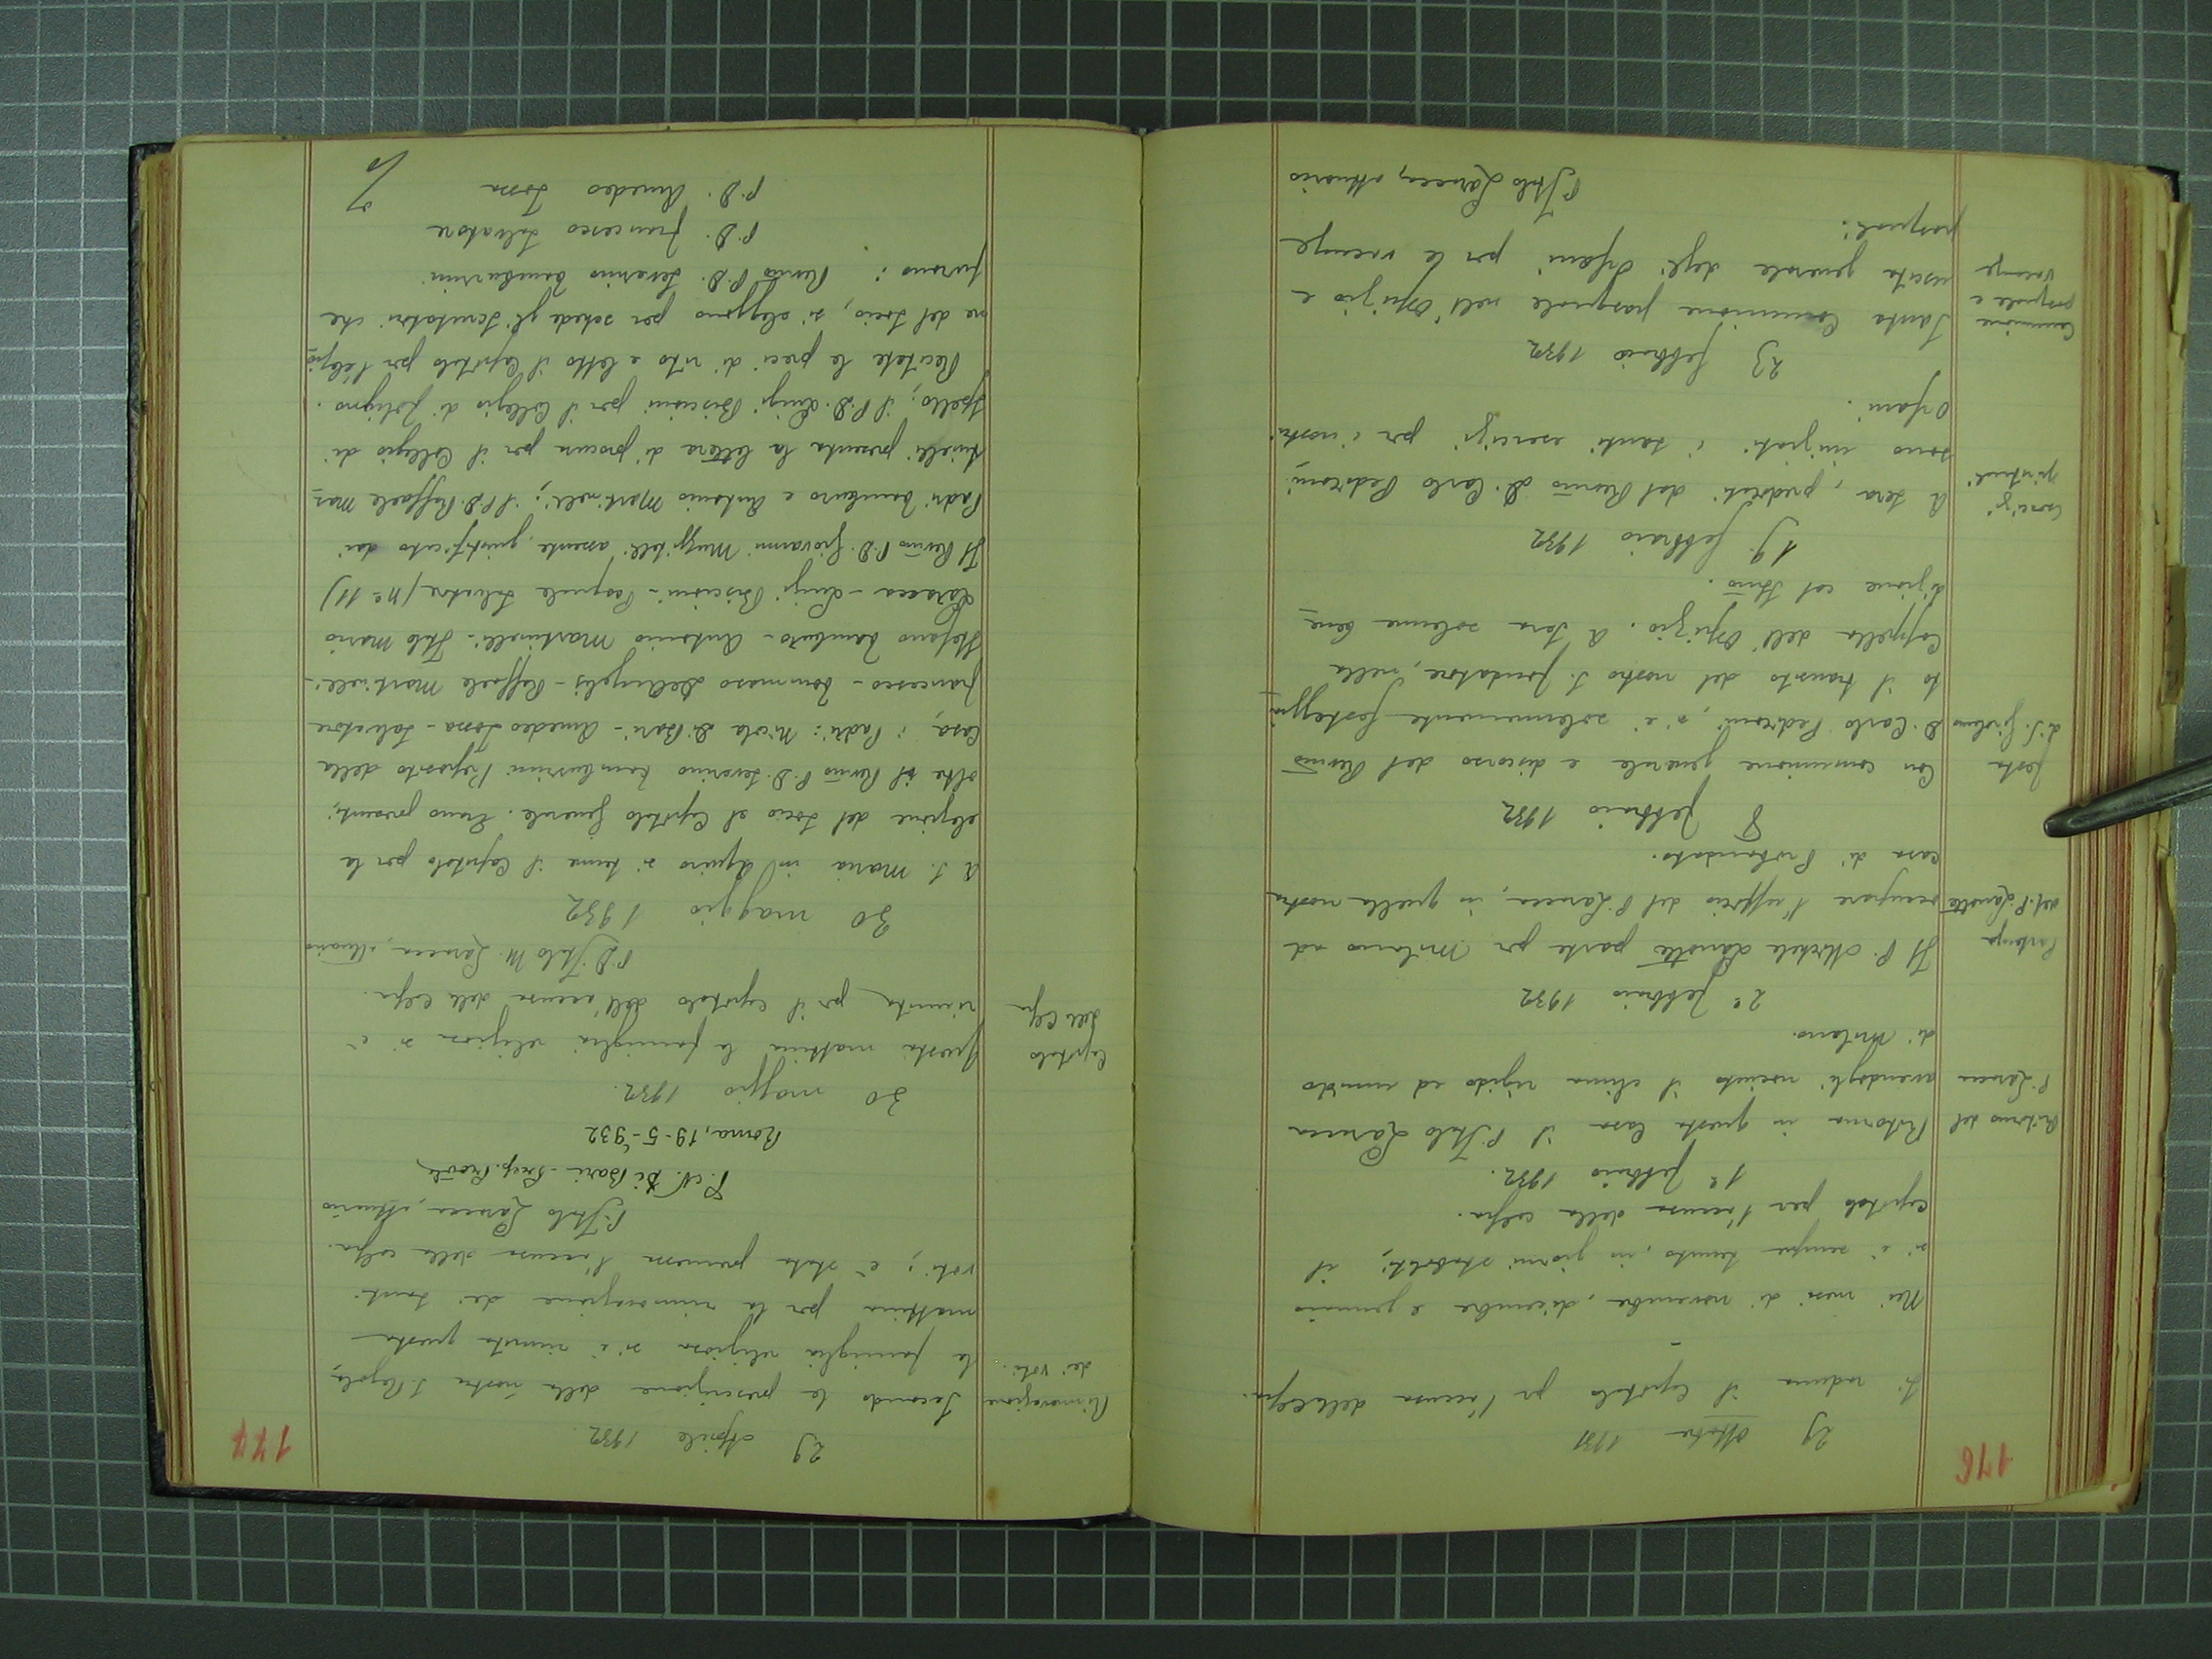 176
29 ottobre 1931
Si raduna il Capitolo per l'accusa della Colpa.
Nei mesi di novembre, dicembre e gennaio
si è sempre tenuto, in giorni stabiliti, il
Capitolo per l'accusa della colpa.
1º febbraio 1932.
Ritorno del
P. Laracca
Ritorna in questa Casa il P. Italo Laracca
avendogli nociuto il clima rigido ed umido
di Milano.
2º febbraio 1932
Partenza
del P.
Il P. Michele parte per Milano ad
occupare l'ufficio del P. Laracca, in quella nostra
casa di Probandato.
8 febbraio 1932
Festa
di S. Girolamo
Con comunione generale e discorso del Revmo
D. Carlo Pedroni, s'è solennemente festeggia-
to il transito del nostro S. Fondatore, nella
Cappella dell'Ospizio. A sera solenne bene-
dizione col Ssmo.
19 febbraio 1932
Esercizi
spirituali
A sera, predicati dal Revmo D. Carlo Pedroni,
sono iniziati i santi esercizi per i nostri
Orfani.
23 febbraio 1932
Comunione
pasquale e
vacanze
Santa Comunione pasquale nell'Ospizio e
uscita generale degli Orfani per le vacanze
pasquali.
P. Italo Laracca, attuario
177
29 aprile 1932.
Rinnovazione
dei voti.
Secondo la prescrizione della nostra S. Regola,
la famiglia religiosa si è riunita questa
mattina per la rinnovazione dei santi
voti; è stata premessa l'accusa della colpa.
P. Italo Laracca, attuario
P. N. Di Bari - Prep. Provle
Roma, 19-5-932
30 maggio 1932.
Capitolo
della Colpa
Questa mattina la famiglia religiosa si è
riunita per il capitolo dell'accusa della colpa.
P. D. Italo M. Laracca, attuario
30 maggio 1932
A S. Maria in Aquiro si tenne il Capitolo per la
elezione del Socio al Capitolo Generale. Erano presenti,
oltre il Revmo P. D. Severino Tamburrini Preposito della
Casa, i Padri: Nicola Di Bari - Amedeo Jossa - Salvatore
Francesco - Tommaso DelAngelis - Raffaele Martinelli -
Stefano Zambaro - Antonio Martinelli - Italo Mario
Laracca - Luigi Biscioni - Pasquale Salvatore (Nº 11)
Il Revmo P. D. Giovanni Muzzitelli assente, giustificato dai
Padri e Antonio Martinelli; il P. D. Raffaele Mar-
tinelli presenta la lettera di procura per il Collegio di
Spello; il P. D. Luigi Biscioni per il Collegio di Foligno.
Recitate le preci di rito e letto il Capitolo per l'elezio-
ne del Socio, si eleggono per schede gli Scrutatori che
furono: Revmo P. D. Severino Tamburrini
P. D. Francesco Salvatore
P. D. Amedeo Jossa